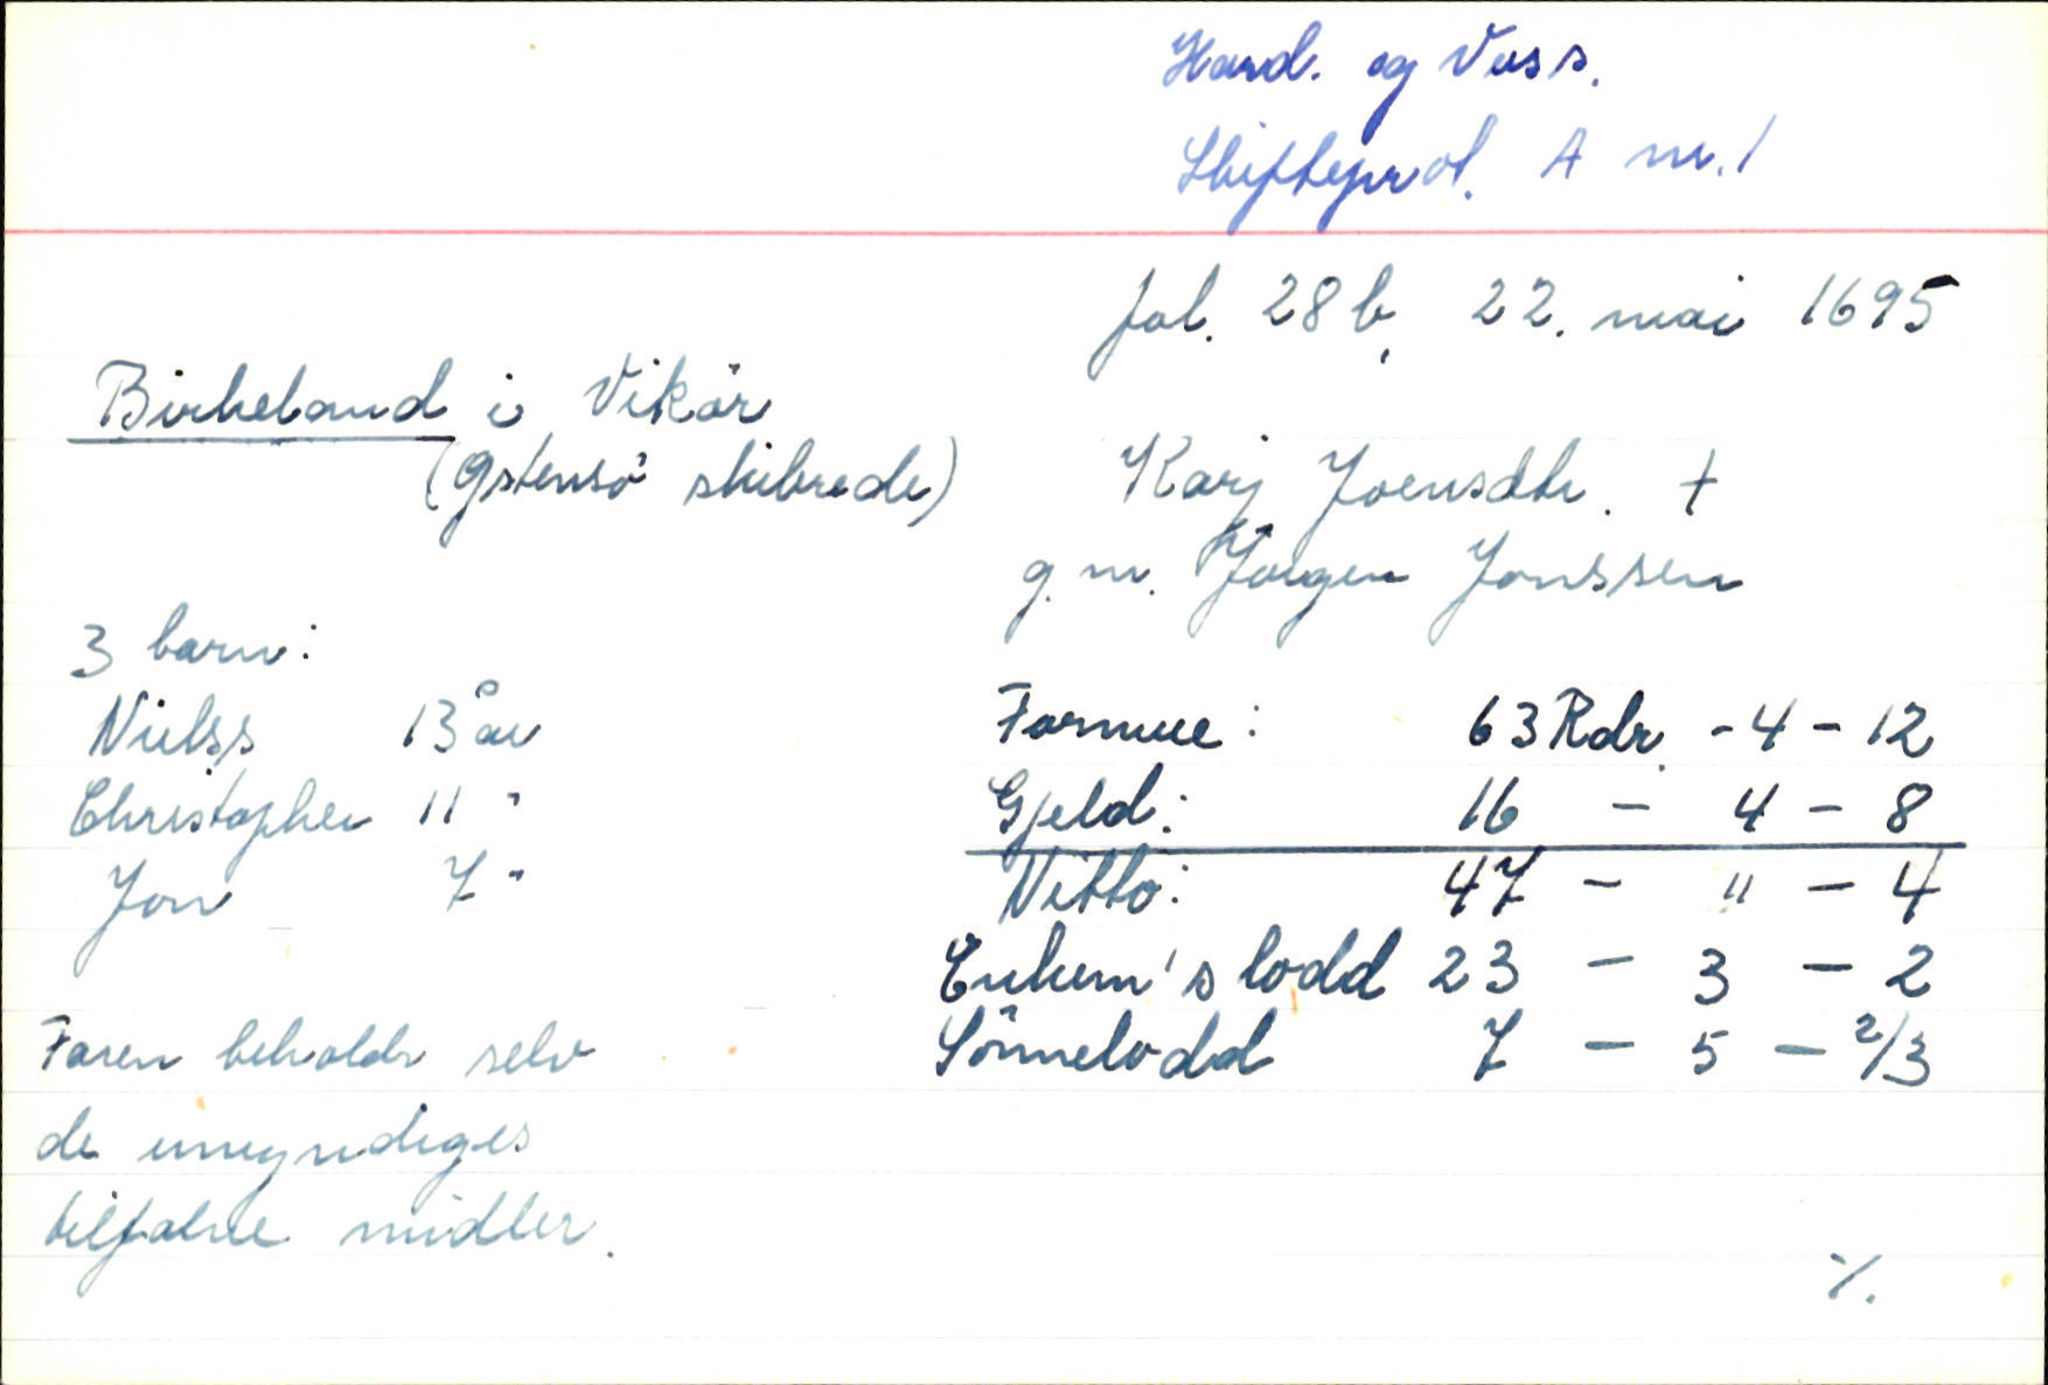 Hard. og Voss.
Skifteprot. A nr. 1
fol. 28b, 22. mai 1695
Birkeland i Vikör
(Østensö skibrede)
Karj Joensdtr. †
g. m. Jörgen Jonssen
3 barn:
Nielss 13 år
Christopher 11 "
Jon 7 "
Formue: 63 Rdr. - 4 - 12
Gjeld: 16 - 4 - 8
Netto: 47 - " - 4
Enkem's lodd 23 - 3 - 2
Sönnelodd 7 - 5 - 2/3
Faren beholdr selv
de umyndiges
tilfalne midler.
·/.